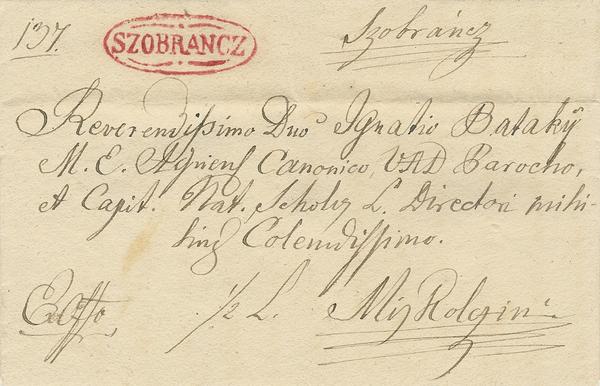 137. SZOBRANCZ Szobráncz
Reverendissimo Dno Ignatio Bataky
M. E. Agriens Canonico, VAD Parocho,
et Capit. Nat. Schol L. Directori mihi-
Colendissimo.
1/2 L.